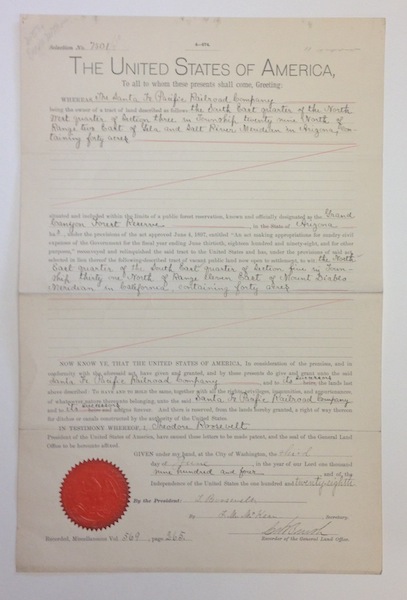 Selection No. 7401
4-274.
THE UNITED STATES OF AMERICA,
To all to whom these presents shall come, Greeting:
WHEREAS The Santa Fe Pacific Railroad Company
being the owner of a tract of land described as follows: the South East quarter of the North
West quarter of Section three in Township twenty nine North of
Range two East of Gila and Salt River Meridian in Arizona, con-
taining forty acres
situated and included within the limits of a public forest reservation, known and officially designated as the Grand
Canyon Forest Reserve in the State of Arizona
has, under the provisions of the act approved June 4, 1897, entitled "An act making appropriations for sundry civil
expenses of the Government for the fiscal year ending June thirtieth, eighteen hundred and ninety-eight, and for other
purposes," reconveyed and relinquished the said tract to the United States and has, under the provisions of said act
selected in lieu thereof the following-described tract of vacant public land now open to settlement, to wit: the North
East quarter of the South East quarter of Section five in Town-
ship thirty one North of Range eleven East of Mount Diablo
Meridian in California, containing forty acres
NOW KNOW YE, THAT THE UNITED STATES OF AMERICA, In consideration of the premises, and in
conformity with the aforesaid act, have given and granted, and by these presents do give and grant unto the said
Santa Fe Pacific Railroad Company and to its successors heirs the lands last
above described. To have and to hold the same, together with all the rights, privileges, immunities, and appurtenances,
of whatsoever nature thereunto belonging, unto the said Santa Fe Pacific Railroad Company
and to its successors heirs and assigns forever. And there is reserved, from the lands hereby granted, a right of way thereon
for ditches or canals constructed by the authority of the United States.
IN TESTIMONY WHEREOF, I Theodore Roosevelt
President of the United States of America, have caused these letters to be made patent, and the seal of the General Land
Office to be hereunto affixed.
GIVEN under my hand, at the City of Washington, the third
day of June, in the year of our Lord one thousand
nine hundred and four and of the
Independence of the United States the one hundred and twenty-eighth
By the President: T. Roosevelt
By F. M. McKean Secretary.
Recorded, Miscellaneous Vol. 569, page 265
Recorder of the General Land Office.